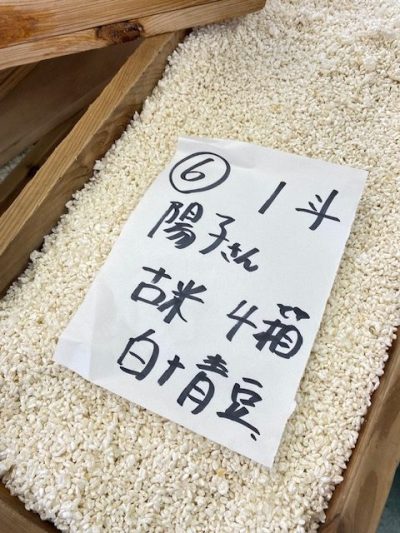 ⑥ 1斗
陽子さん
古米 4箱
白+青豆、